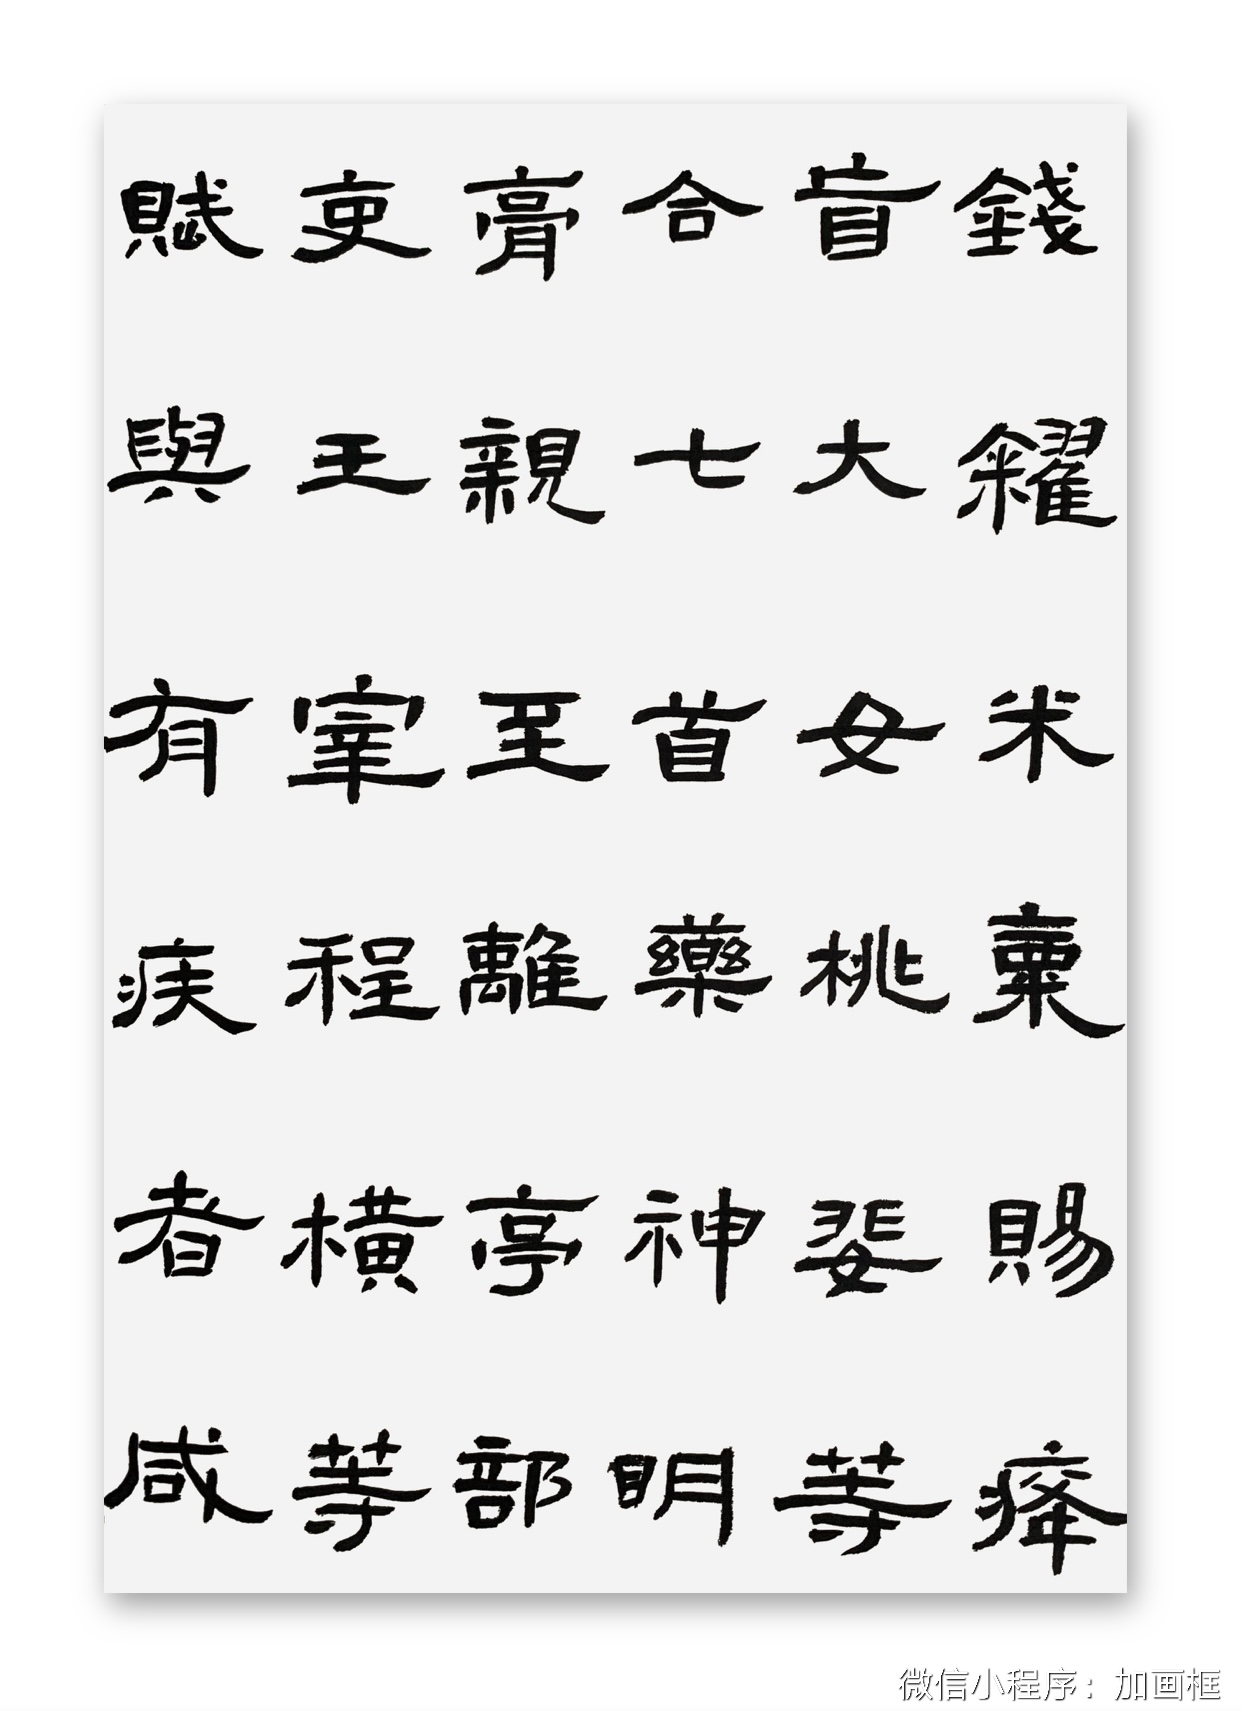 錢糴米粟賜癃
盲大女桃婓等
合七首藥神明
膏親至離亭部
吏王宰程橫等
賦與有疾者咸
微信小程序：加画框